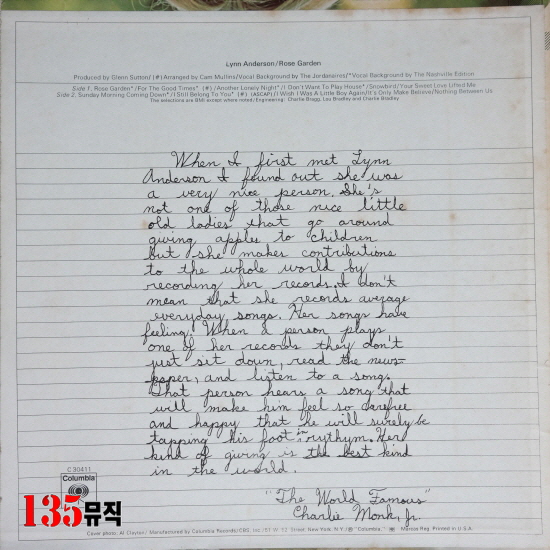 Lynn Anderson/Rose Garden
Produced by Glenn Sutton/(#)Arranged by Cam Mullins/Vocal Background by The Jordanaires/*Vocal Background by The Nashville Edition
Side 1. Rose Garden*/For The Good Times* (#)/Another Lonely Night*/I Don't Want To Play House*/Snowbird/Your Sweet Love Lifted Me
Side 2. Sunday Morning Coming Down*/I Still Belong To You* (#) (ASCAP)/I Wish I Was A Little Boy Again/It's Only Make Believe/Nothing Between Us
The selections are BMI except where noted/Engineering: Charlie Bragg, Lou Bradley and Charlie Bradley
When I first met Lynn
Anderson I found out she was
a very nice person. She's
not one of those nice little
old ladies that go around
giving apples to children
but she makes contributions
to the whole world by
recording her records. I don't
mean that she records average
everyday songs. Her songs have
feeling. When a person plays
one of her records they don't
just sit down, read the news=
paper, and listen to a song.
That person hears a song that
will make him feel so carefree
and happy that he will surely be
tapping his foot in rythym. Her
kind of giving is the best kind
in the world.
"The World Famous"
Charlie Monk, Jr.
C 30411
Columbia
135뮤직
Cover photo: Al Clayton/Manufactured by Columbia Records/CBS, Inc./51 W. 52 Street, New York, N.Y./® "Columbia," Marcas Reg. Printed in U.S.A.